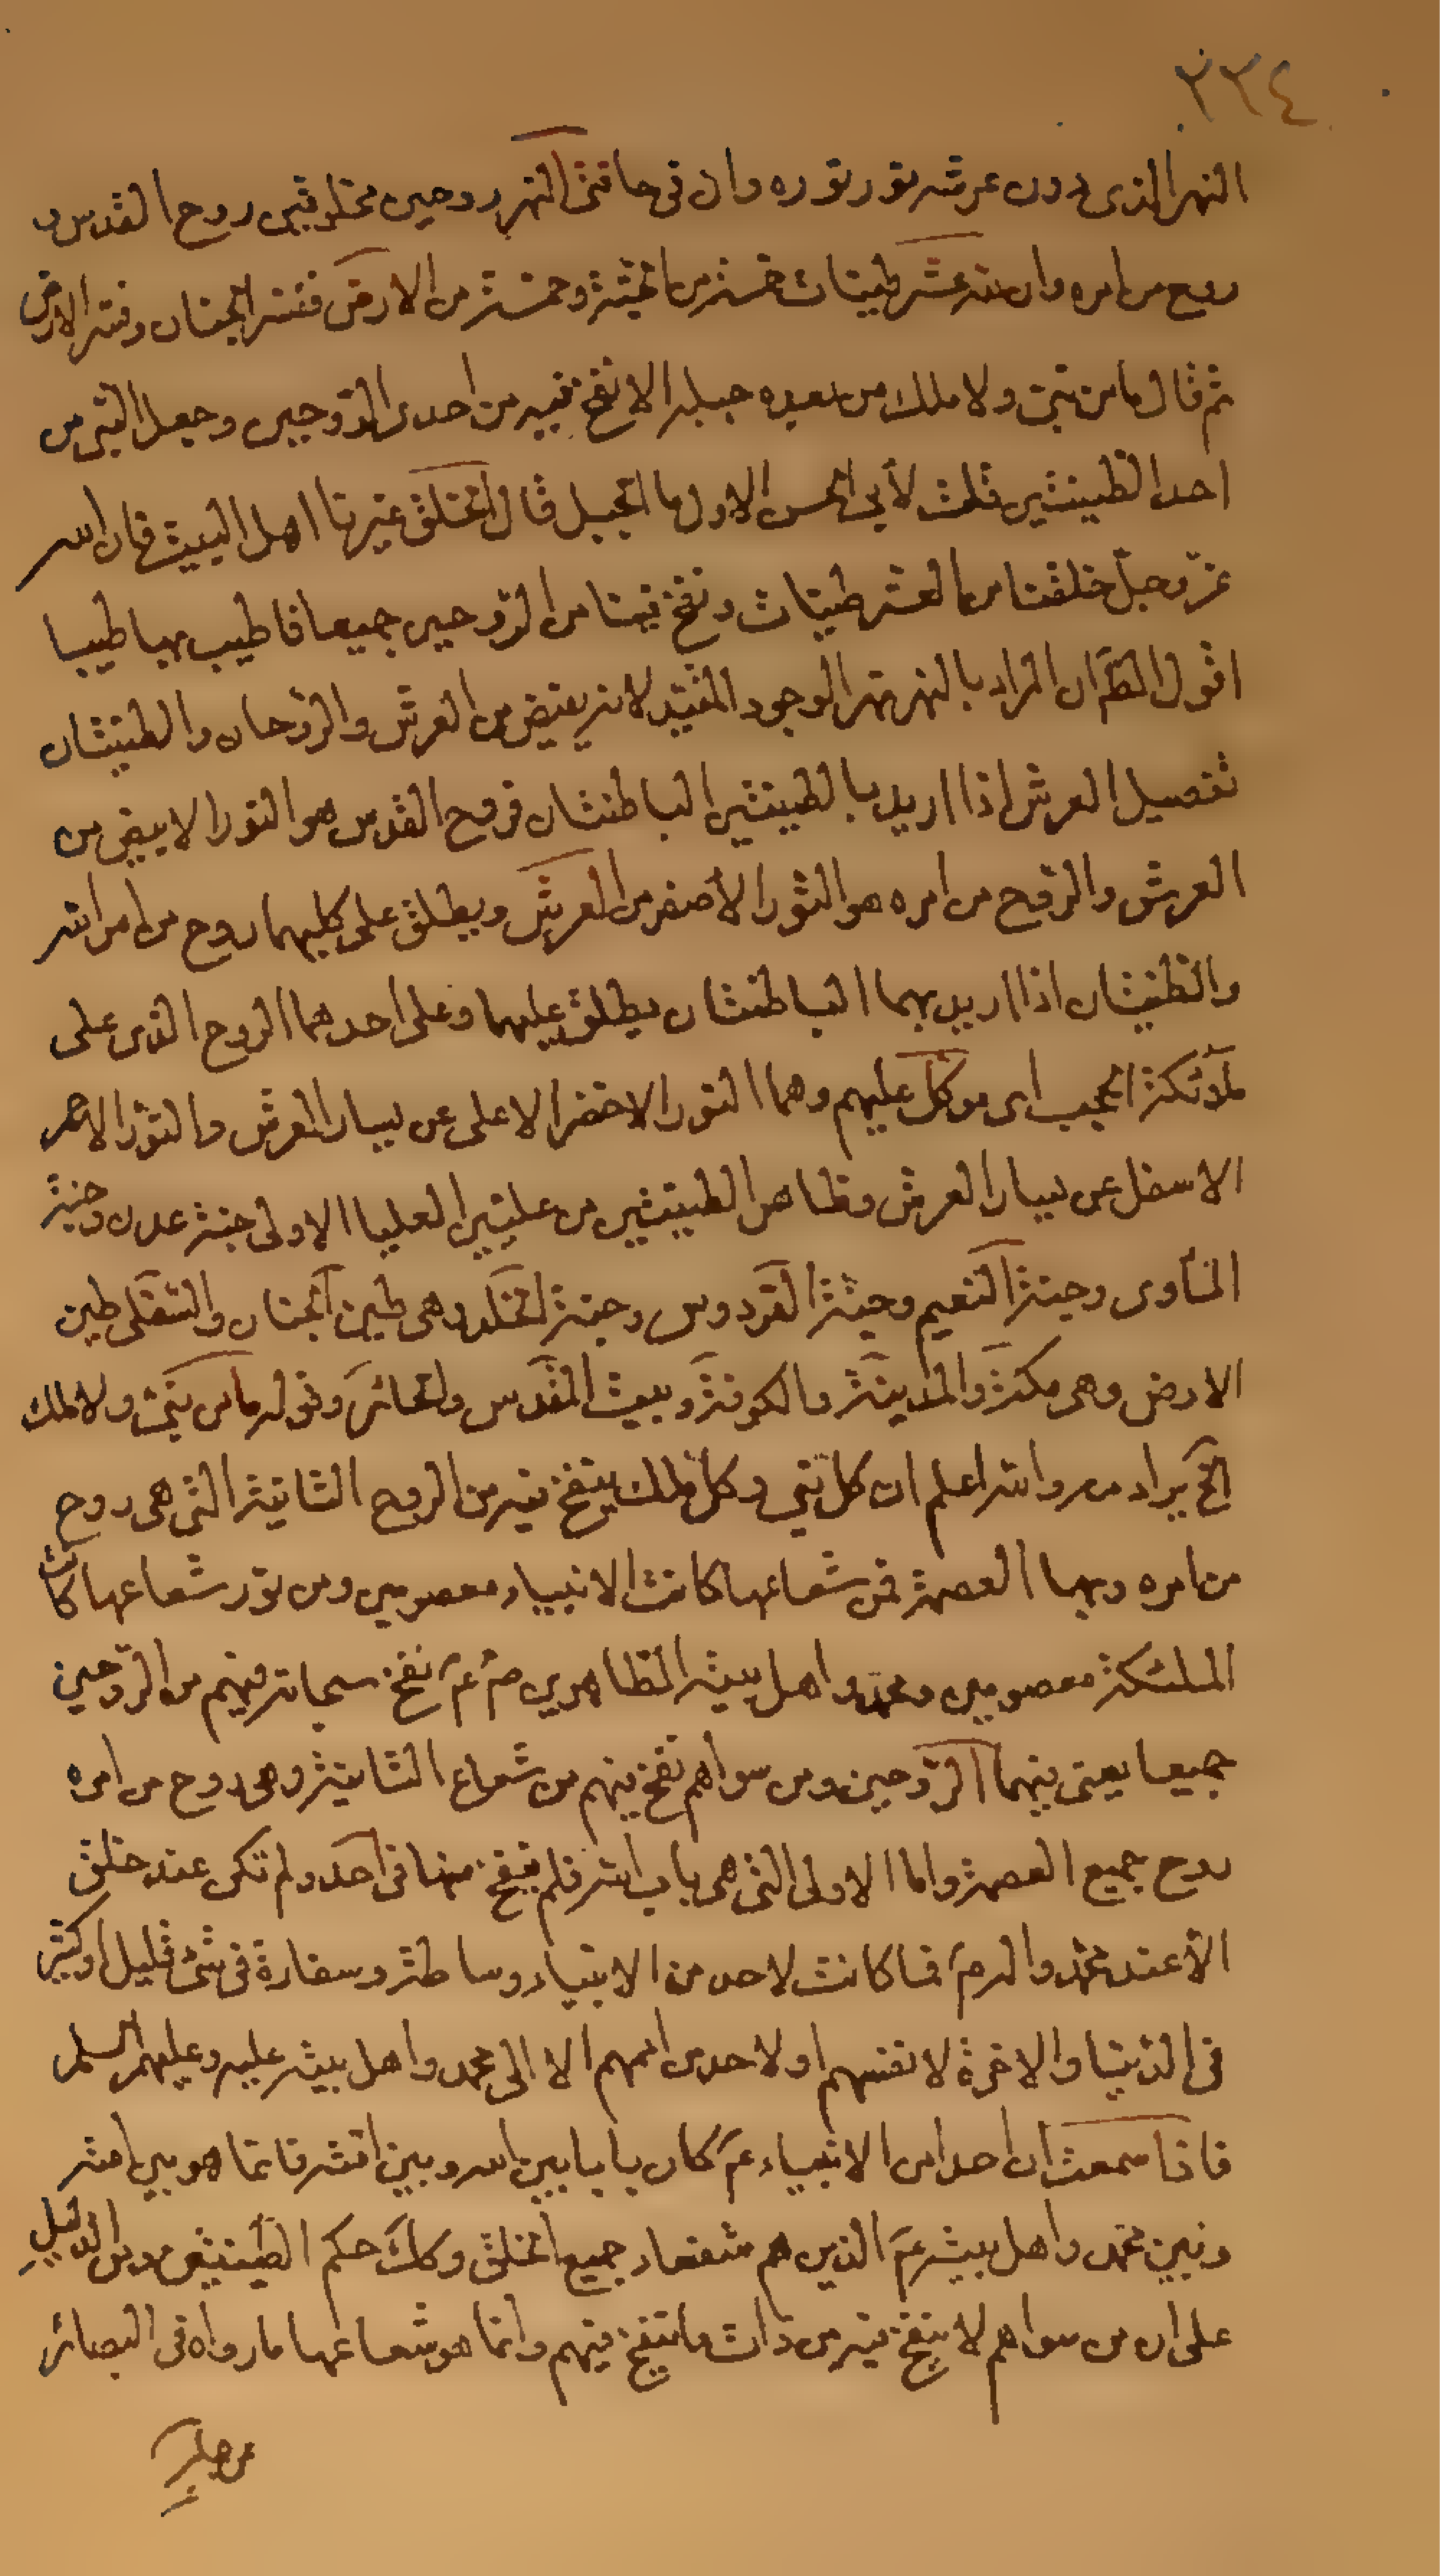 ٢٣٤
النهر الذى دون عرشه نور نوره وان فى حافتى النهر روحين مخلوقين روح القدس و
روح من امره وان لله عشر طينات خمسة من الجنة وخمسة من الارض ففسر الجنان وفسر الارض
ثم قال ما من نبى ولا ملك من بعده جبله الا نفخ فيه من احدى الروحين وجعل النبى من
احد الطينتين قلت لأبى الحسن الاول ما الجبل قال الخلق غيرنا اهل البيت فان الله
عز وجل خلقنا من العشر طينات ونفخ فينا من الروحين جميعا فاطيب بها طيبا
اقول الظم ان المراد بالنهر نهر الوجود المقيد لانه يفيض من العرش والروحان والطينتان
تفصيل العرش اذا اريد بالطينتين الباطنتان فروح القدس هو النور الابيض من
العرش والروح من امره هو النور الأصفر من العرش ويطلق على كليهما روح من امر الله
والطينتان اذا اريد بهما الباطنتان يطلق عليهما وعلى احدهما الروح الذى على
ملآئكة الحجب اى موكل عليهم وهما النور الاخضر الاعلى عن يسار العرش والنور الاحمر
الاسفل عن يسار العرش وظاهر الطينتين من عليين العليا الاولى جنة عدن وجنة
المأوى وجنة النعيم وجنة الفردوس وجنة الخلد وهى طين الجنان والسفلى طين
الارض وهى مكة والمدينة والكوفة وبيت المقدس والحائر وقوله ما من نبى ولا ملك
الخ يراد منه والله اعلم ان كل نبى وكل ملك ينفخ فيه من الروح الثانية التى هى روح
من امره وبها العصمة فمن شعاعها كانت الانبياء معصومين ومن نور شعاعها كانت
الملئكة معصومين ومحمد واهل بيته الطاهرين صم عم نفخ سبحانه فيهم من الروحين
جميعا يعنى فيهما الروحين ومن سواهم نفخ فيهم من شعاع الثانية وهى روح من امره
روح جميع العصمة واما الاولى التى هى باب الله فلم ينفخ منها فى احد ولم تكن عند خلق
الأ عند محمد واله م فما كانت لاحد من الانبياء وساطة وسفارة فى شئ قليل او كثير
فى الدنيا والاخرة لانفسهم او لاحد من اممهم الا الى محمد واهل بيته عليه وعليهم السلم
فاذا سمعت ان احدا من الانبياء عم كان بابا بين الله وبين امته فانما هو بين امته
وبين محمد واهل بيته عم الذين هم شفعاء جميع الخلق وكك حكم الطينتين ومن الدليل
على ان من سواهم لا ينفخ فيه من ذات ما ينفخ فيهم وانما هو شعاعها ما رواه فى البصائر